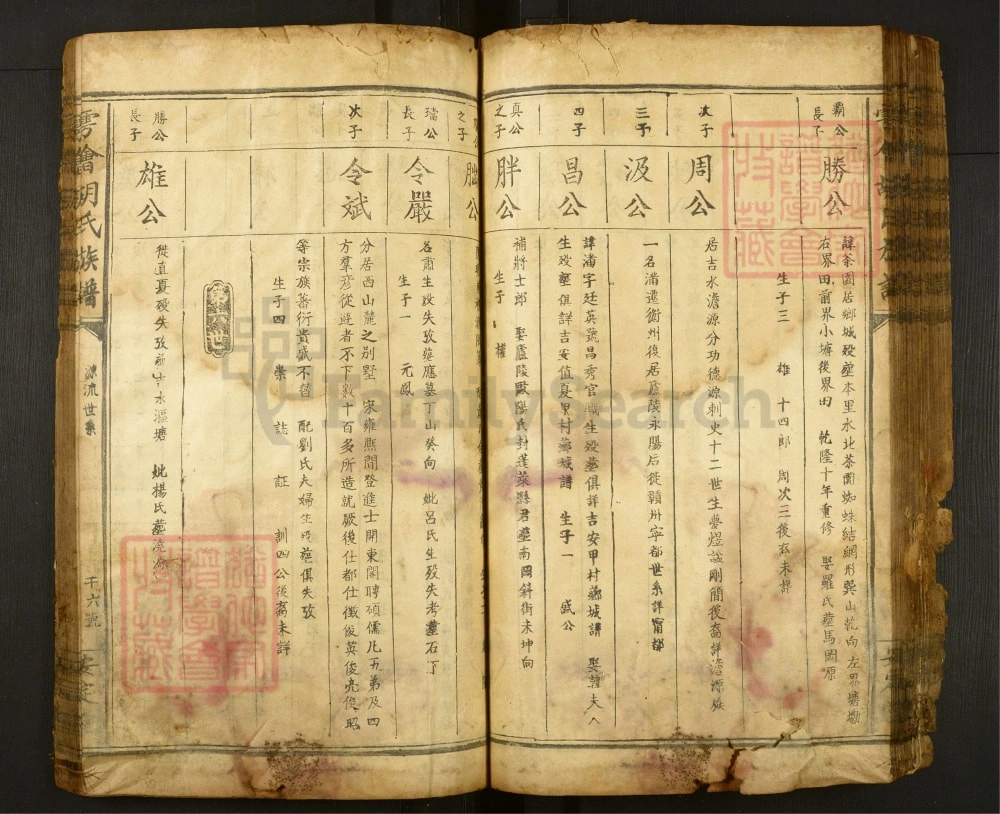 霸公
長子
勝公
諱茶園居鄉城歿塟本里水北茶園蜘蛛結網形巽山乾向左界塘墈
右界田前界小塘後界田 乾隆十年重修 娶羅氏塟馬岡原
生子三 雄 十四郎 周次三後裔未詳
次子
周公
居吉水澹源分功德源刺史十二世生夢煜謚剛簡後裔詳澹源
三子
汲公
一名滿遷衡州復居廬陵永陽后徙贛州寧都世系詳甯都
四子
昌公
諱浦字廷英號昌秀官 生歿塟俱詳吉安甲村薌城譜 娶韓夫人
生歿塟俱詳吉安值夏里村薌城譜 生子一 盛公
真公
之子
胖公
補將士郎 娶廬陵歐陽氏封蓬萊縣君塟南岡斜街未坤向
生子 權
之子
胐公
璫公
長子
令嚴
名肅生歿失攷塟應墓丁山癸向 妣呂氏生歿失考塟石丁
生子一 元鳳
次子
令斌
分居西山麓之別墅 宋雍熙間登進士開東閣聘碩儒凡五弟及四
方羣彥從遊者不下數十百多所造就厥後仕都仕徵俊英俊亮俊昭
等宗族蕃衍貴盛不替 配劉氏夫婦生歿塟俱失攷
生子四 崇 誌 証 訓四公後裔未詳
勝公
長子
雄公
從道真歿失攷 水溫塘 妣楊氏塟
雩 胡氏族譜
源流世系
安定